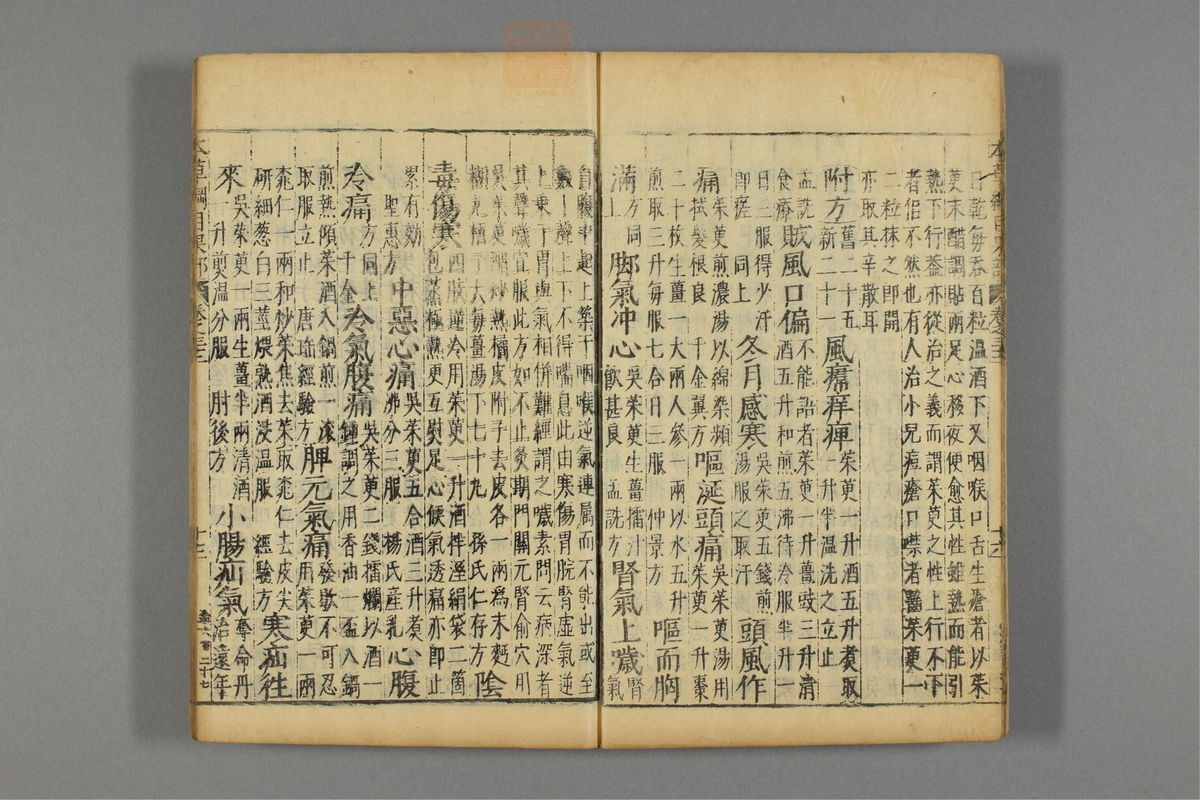 日乾每吞百粒温酒下又咽喉口舌生瘡者以茱
萸末醋調貼兩足心移夜便愈其性雖熱而能引
熱下行葢亦從治之義而謂茱萸之性上行不下
者似不然也有人治小兒痘瘡口噤者嚼茱萸一
二粒抹之即開
亦取其辛散耳
附方舊二十五新二十一
風㿏痒痺茱萸一升酒五升煑取一升半温洗之立止
孟詵食療
賊風口偏不能語者茱萸一升薑豉三升清酒五升和煎五沸待冷服半升一日三服得少汗即瘥 同上
冬月感寒吳茱萸五錢煎湯服之取汗
頭風作痛茱萸煎濃湯以綿染頻拭髮根良 千金翼方
嘔涎頭痛吳茱萸湯用茱萸一升棗二十枚生薑一大兩人參一兩以水五升煎取三升每服七合日三服 仲景方
嘔而胸滿方同上
脚氣冲心吳茱萸生薑擂汁飲甚良 孟詵方
腎氣上噦腎氣
自腹中起上築于咽喉逆氣連属而不能出或至
數十聲上下不得喘息此由寒傷胃脘腎虛氣逆
上乗于胃與氣相併難經謂之噦素問云病深者
其聲噦宜服此方如不止灸期門關元腎俞穴用
吳茱萸醋炒熱橘皮附子去皮各一兩為末麪
糊丸梧子大每薑湯下七十丸 孫氏仁存方
陰毒傷寒四肢逆冷用茱萸一升酒拌溼絹袋二箇包蒸極熱更互熨足心候氣透痛亦即止累有効 聖惠方
中惡心痛吳茱萸五合酒三升煑沸分三服 楊氏産乳
心腹冷痛方同上 千金
冷氣腹痛吳茱萸二錢擂爛以酒一鍾調之用香油一盃入鍋煎熱傾茱酒入鍋煎一滚取服立止 唐瑤經驗方
脾元氣痛發歇不可忍用茱萸一兩桃仁一兩和炒茱焦去茱取桃仁去皮尖研細葱白三莖煨熟酒浸温服 經驗方
寒疝徃來吳茱萸一兩生薑半兩清酒一升煎温分服 肘後方
小腸疝氣奪命丹治遠年
本草綱目果部 卷之三十二
十二